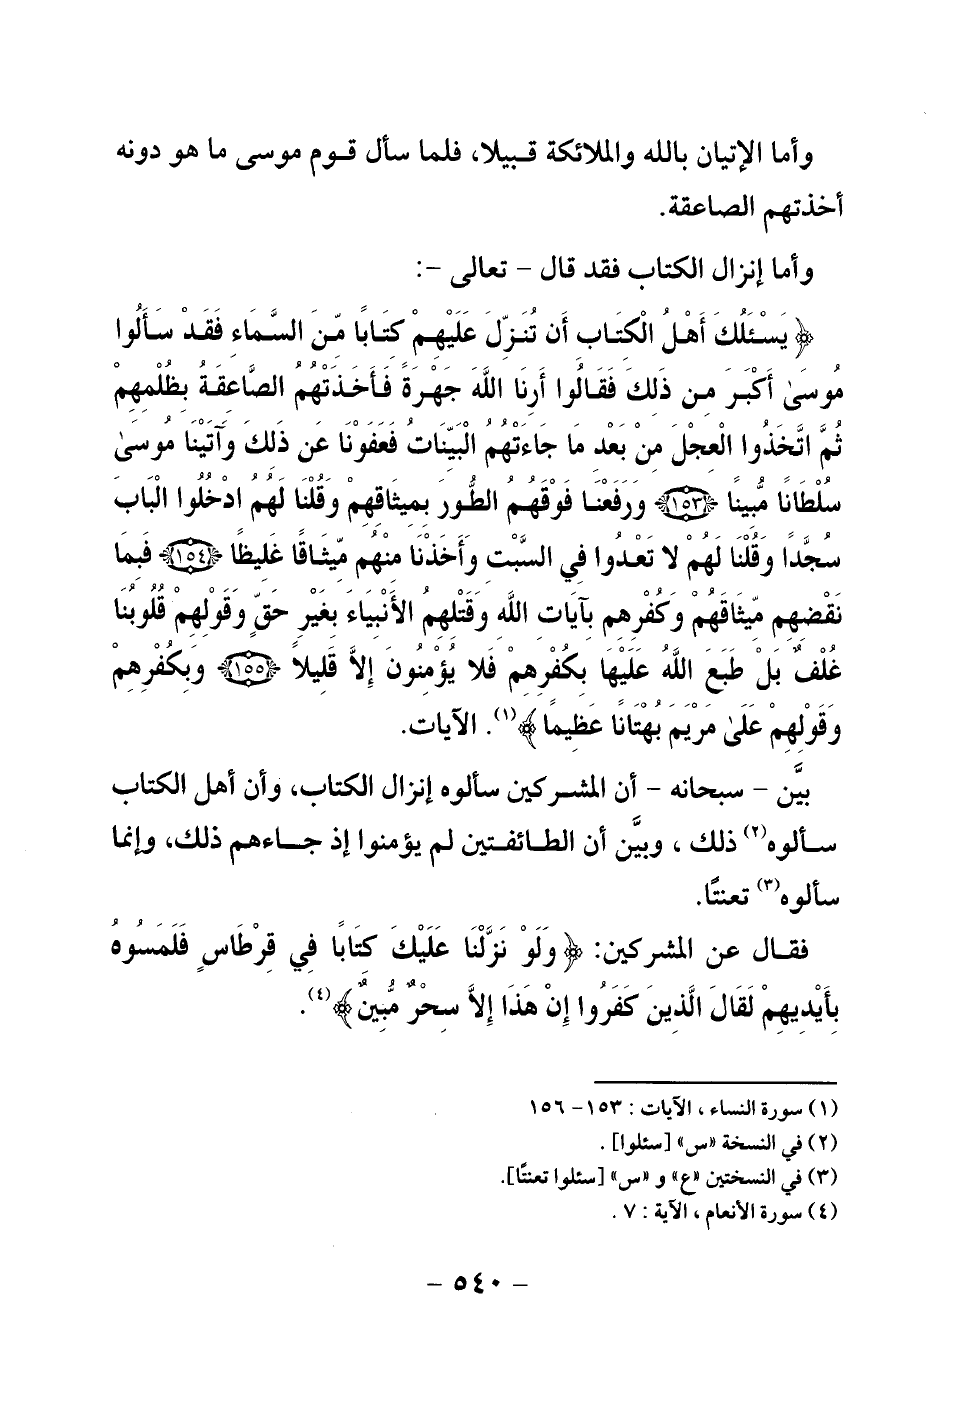 وأما الإتيان بالله والملائكة قبيلا، فلما سأل قوم موسى ما هو دونه
أخذتهم الصاعقة.
وأما إنزال الكتاب فقد قال – تعالى –:
﴿ يَسْئَلُكَ أَهْلُ الْكِتَابِ أَن تُنَزِّلَ عَلَيْهِمْ كِتَابًا مِّنَ السَّمَاءِ فَقَدْ سَأَلُوا
مُوسَىٰ أَكْبَرَ مِن ذَلِكَ فَقَالُوا أَرِنَا اللَّهَ جَهْرَةً فَأَخَذَتْهُمُ الصَّاعِقَةُ بِظُلْمِهِمْ
ثُمَّ اتَّخَذُوا الْعِجْلَ مِنْ بَعْدِ مَا جَاءَتْهُمُ الْبَيِّنَاتُ فَعَفَوْنَا عَن ذَلِكَ وَآتَيْنَا مُوسَىٰ
سُلْطَانًا مُّبِينًا ﴿١٥٣﴾ وَرَفَعْنَا فَوْقَهُمُ الطُّورَ بِمِيثَاقِهِمْ وَقُلْنَا لَهُمُ ادْخُلُوا الْبَابَ
سُجَّدًا وَقُلْنَا لَهُمْ لا تَعْدُوا فِي السَّبْتِ وَأَخَذْنَا مِنْهُم مِّيثَاقًا غَلِيظًا ﴿١٥٤﴾ فَبِمَا
نَقْضِهِم مِّيثَاقَهُمْ وَكُفْرِهِم بِآيَاتِ اللَّهِ وَقَتْلِهِمُ الأَنْبِيَاءَ بِغَيْرِ حَقٍّ وَقَوْلِهِمْ قُلُوبُنَا
غُلْفٌ بَلْ طَبَعَ اللَّهُ عَلَيْهَا بِكُفْرِهِمْ فَلا يُؤْمِنُونَ إِلاَّ قَلِيلاً ﴿١٥٥﴾ وَبِكُفْرِهِمْ
وَقَوْلِهِمْ عَلَىٰ مَرْيَمَ بُهْتَانًا عَظِيمًا ﴾(١). الآيات.
بيَّن – سبحانه – أن المشركين سألوه إنزال الكتاب، وأن أهل الكتاب
سألوه(٢) ذلك ، وبيَّن أن الطائفتين لم يؤمنوا إذ جاءهم ذلك، وإنما
سألوه(٣) تعنتًا.
فقال عن المشركين: ﴿ وَلَوْ نَزَّلْنَا عَلَيْكَ كِتَابًا فِي قِرْطَاسٍ فَلَمَسُوهُ
بِأَيْدِيهِمْ لَقَالَ الَّذِينَ كَفَرُوا إِنْ هَذَا إِلاَّ سِحْرٌ مُّبِينٌ ﴾(٤).
(١) سورة النساء ، الآيات : ١٥٣- ١٥٦
(٢) في النسخة «س» [سئلوا] .
(٣) في النسختين «ع» و «س» [سئلوا تعنتًا].
(٤) سورة الأنعام ، الآية : ٧ .
– ٥٤٠ –